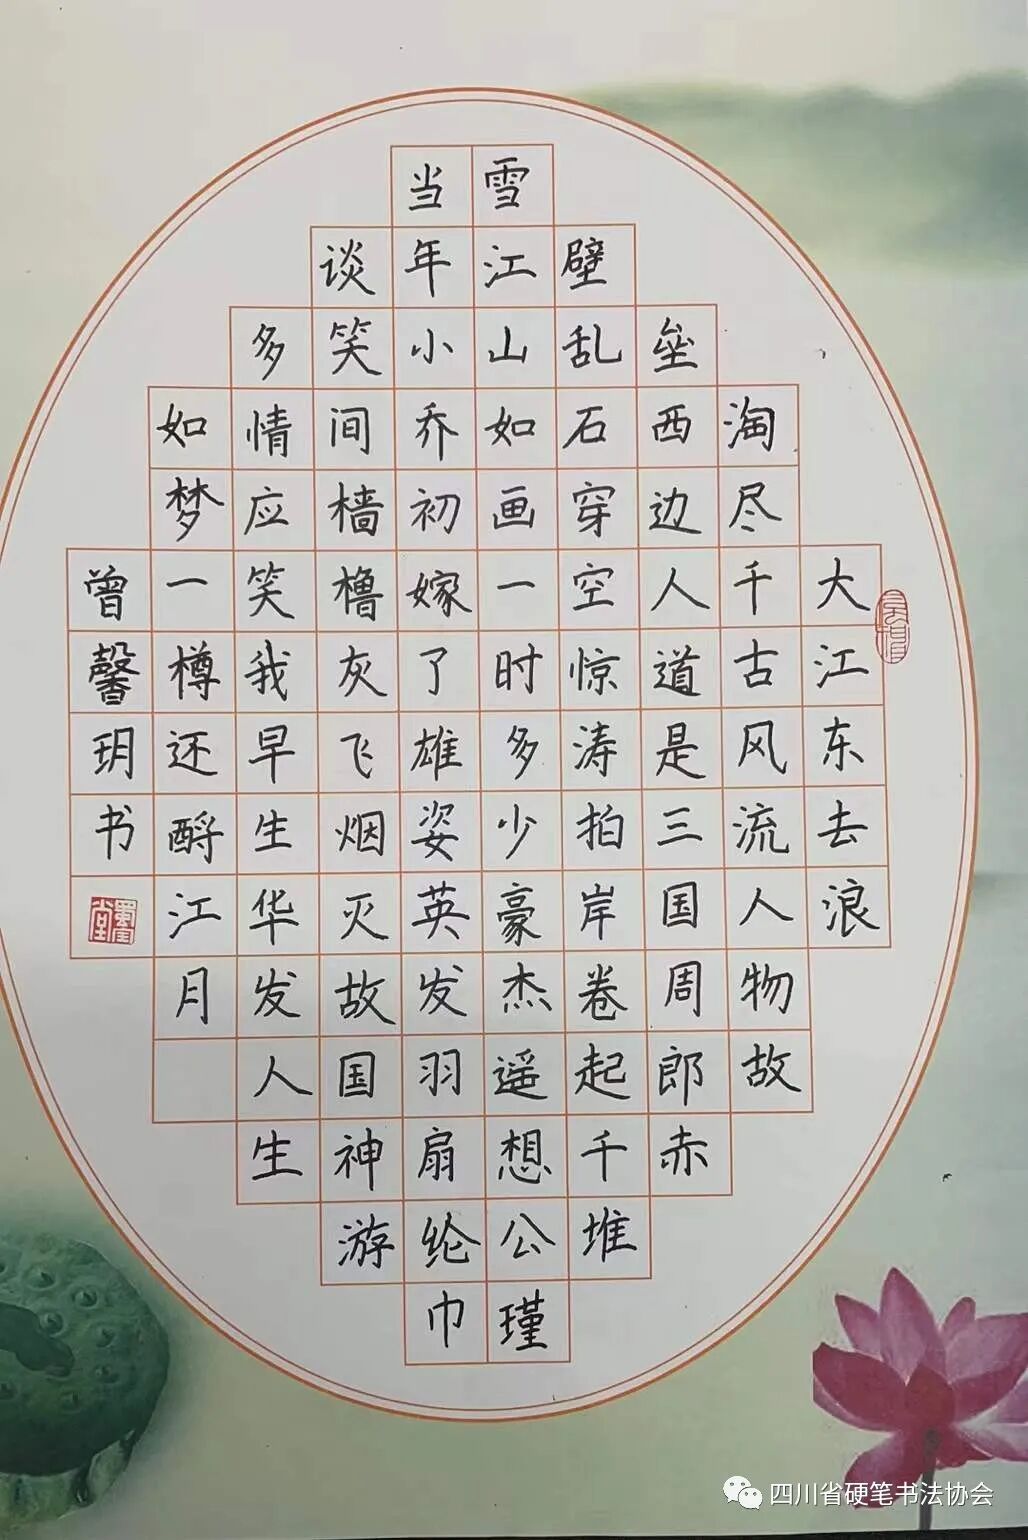 大江东去浪
淘尽千古风流人物故
垒西边人道是三国周郎赤
壁乱石穿空惊涛拍岸卷起千堆
雪江山如画一时多少豪杰遥想公瑾
当年小乔初嫁了雄姿英发羽扇纶巾
谈笑间樯橹灰飞烟灭故国神游
多情应笑我早生华发人生
如梦一樽还酹江月
曾馨玥书
四川省硬笔书法协会